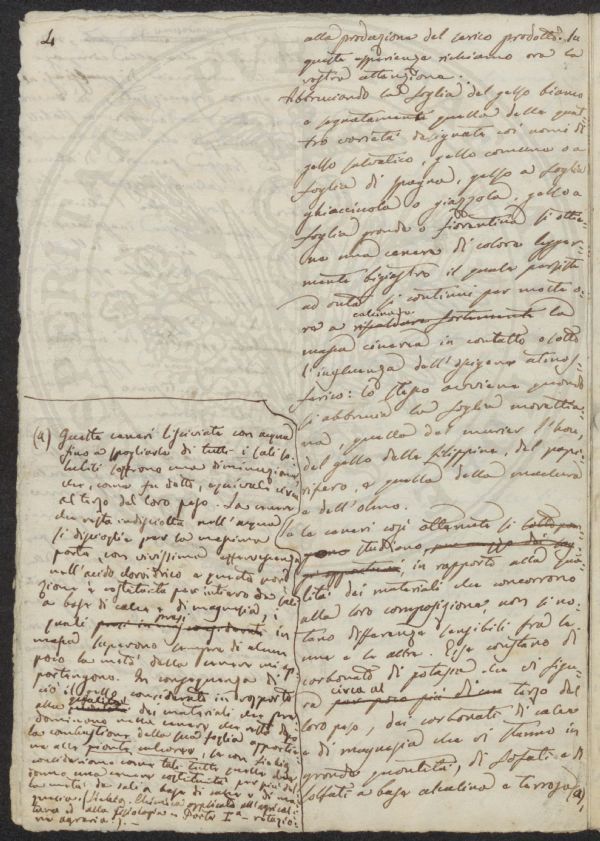 4
alla produzione del serico prodotto. Su
queste esperienze richiamo ora la
vostra attenzione.
Abbruciando la foglia del gelso bianco
e segnatamente quella delle quat-
tro varietà designate coi nomi di
gelso selvatico, gelso comune o a
foglia di Spagna, gelso a foglia
ghiacciuola o giazzola, gelso a
foglia grande o fiorentina si ottie-
ne una cenere di colore legger-
mente bigiastro il quale persiste
ad onta si continui per molte o-
re a calcinare riscaldare fortemente la
massa cinerea in contatto o sotto
l'influenza dell'ossigeno atmos-
ferico: lo stesso avviene quando
si abbrucia la foglia morettia-
na, quella del murier Lhou,
del gelso delle Filippine, del papi-
rifero, e quella della maclura
e dell'olmo.
Se le ceneri così ottenute si
studiano, in rapporto alla qua-
lità dei materiali che concorrono
alla loro composizione, non si no-
tano differenze sensibili fra le
une e le altre. Esse constano di
carbonato di potassa che vi figu-
ra circa al per poco più di un terzo del
loro peso, dei carbonati di calce
e di magnesia che vi stanno in
grande quantità, di fosfati e di
solfati a base alcalina e terrosa (a)
(a) Queste ceneri lisciviate con acqua
fino a spogliarle di tutti i sali so-
lubili soffrono una diminuzione
che, come fu detto, equivale circa
al terzo del loro peso. La cenere
che resta indisciolta nell'acqua
si discioglie per la massima
parte con vivissima effervescenza
nell'acido cloridrico e questa por-
zione è costituita per intero da sali
a base di calce e di magnesia, i
quali presi in
massa superano sempre di alcun
poco la metà della cenere cui ap-
partengono. In conseguenza di
ciò il gelso considerato in rapporto
alla qualità dei materiali che pre-
dominano nella cenere che resta do-
po la combustione della sua foglia apparti-
ene alle piante calcaree, se con Liebig
consideriamo come tali tutte quelle che
danno una cenere costituita per più del-
la metà da sali a base di calce e di ma-
gnesia. (Liebig, Chimica applicata all'agricol-
tura ed alla fisiologia - Parte Iª - rotazio-
ne agraria.) -